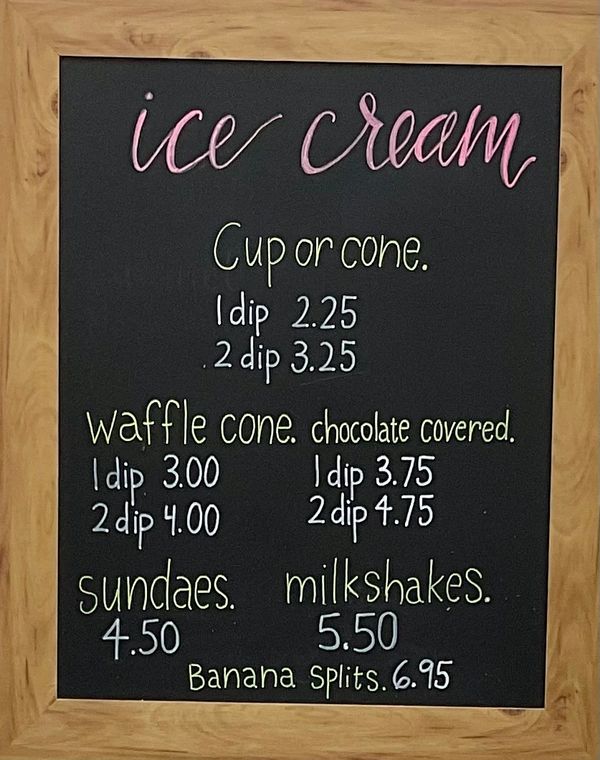 ice cream
Cup or cone.
1 dip 2.25
2 dip 3.25
waffle cone. chocolate covered.
1 dip 3.00 1 dip 3.75
2 dip 4.00 2 dip 4.75
sundaes. milkshakes.
4.50 5.50
Banana Splits. 6.95